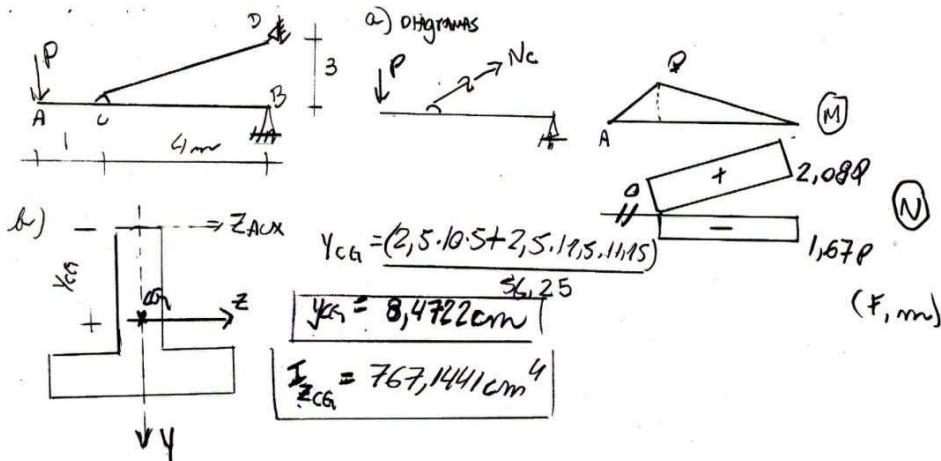 D
P
3
A
C
B
1
4m
a) DIAGRAMAS
P
Nc
P
A
M
+
2,08P
0
N
-
1,67P
(F, m)
b)
ZAUX
YCG
CG
Z
Y
YCG = (2,5.10.5+2,5.17,5.11,15)
56,25
yCG = 8,4722cm
IZCG = 767,1441cm⁴